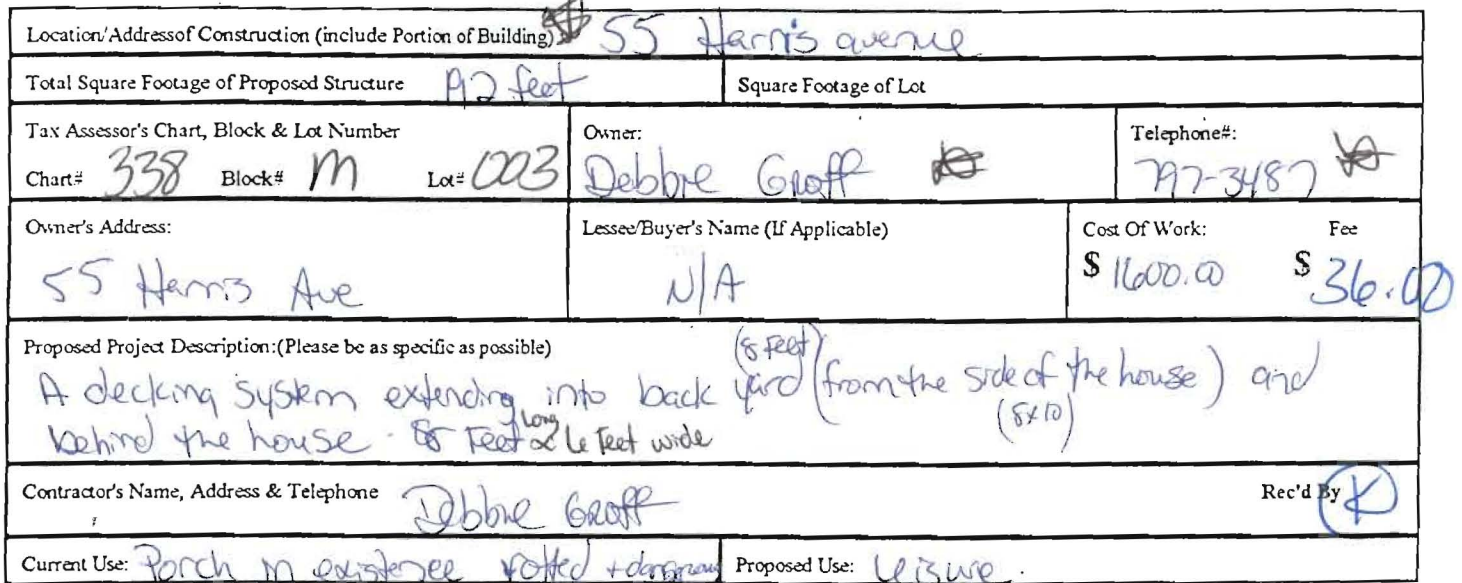 Location/Addressof Construction (include Portion of Building) 55 Harris avenue
Total Square Footage of Proposed Structure 192 feet Square Footage of Lot
Tax Assessor's Chart, Block & Lot Number Owner: Telephone#:
Chart# 338 Block# M Lot# 003 Debbie Groff 797-3487
Owner's Address: Lessee/Buyer's Name (If Applicable) Cost Of Work: Fee
55 Harris Ave N/A $ 1600.00 $ 36.00
Proposed Project Description:(Please be as specific as possible)
(8 feet)
A decking system extending into back yard (from the side of the house) and
Long (8x10)
behind the house. 8 Feet 6 feet wide
Contractor's Name, Address & Telephone Debbie Groff Rec'd By K
Current Use: Porch in existence rotted + dangerous Proposed Use: Leisure.